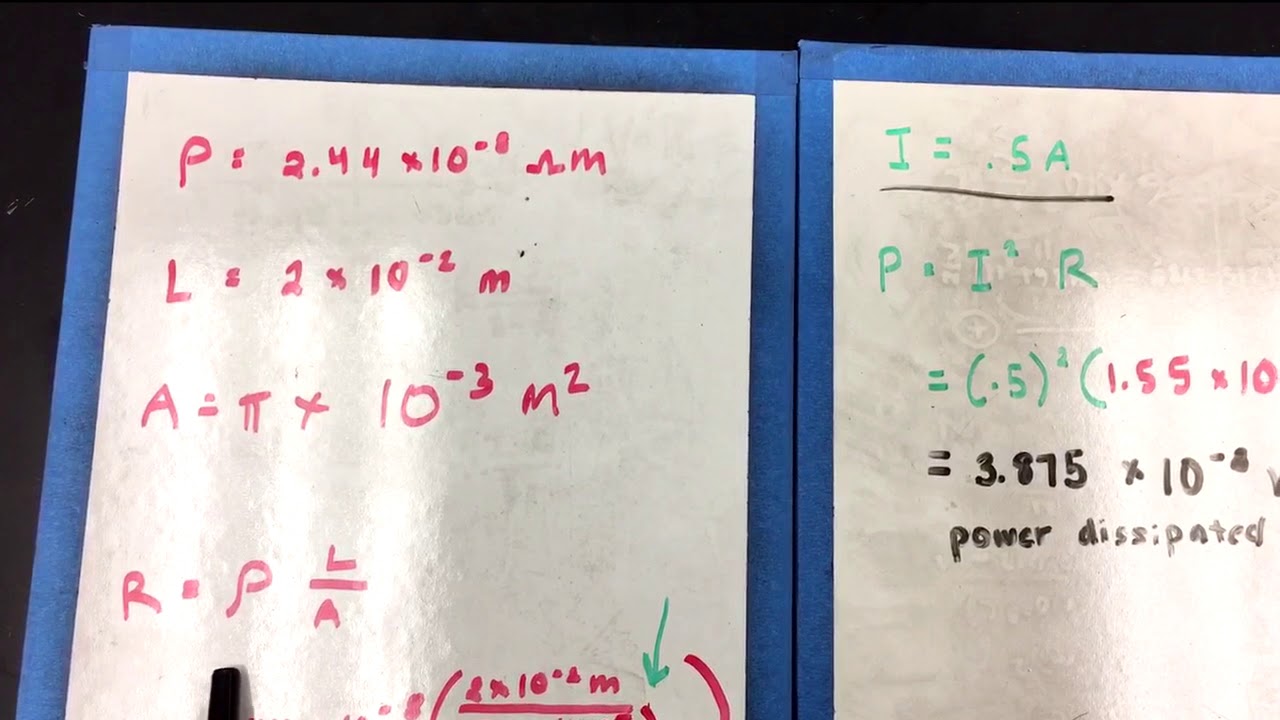 ρ = 2.44 × 10⁻⁸ Ωm
L = 2 × 10⁻² m
A = π × 10⁻³ m²
R = ρ L/A
(2×10⁻² m
)
I = .5 A
P = I² R
= (.5)² (1.55 × 10
= 3.875 × 10⁻⁸
power dissipated